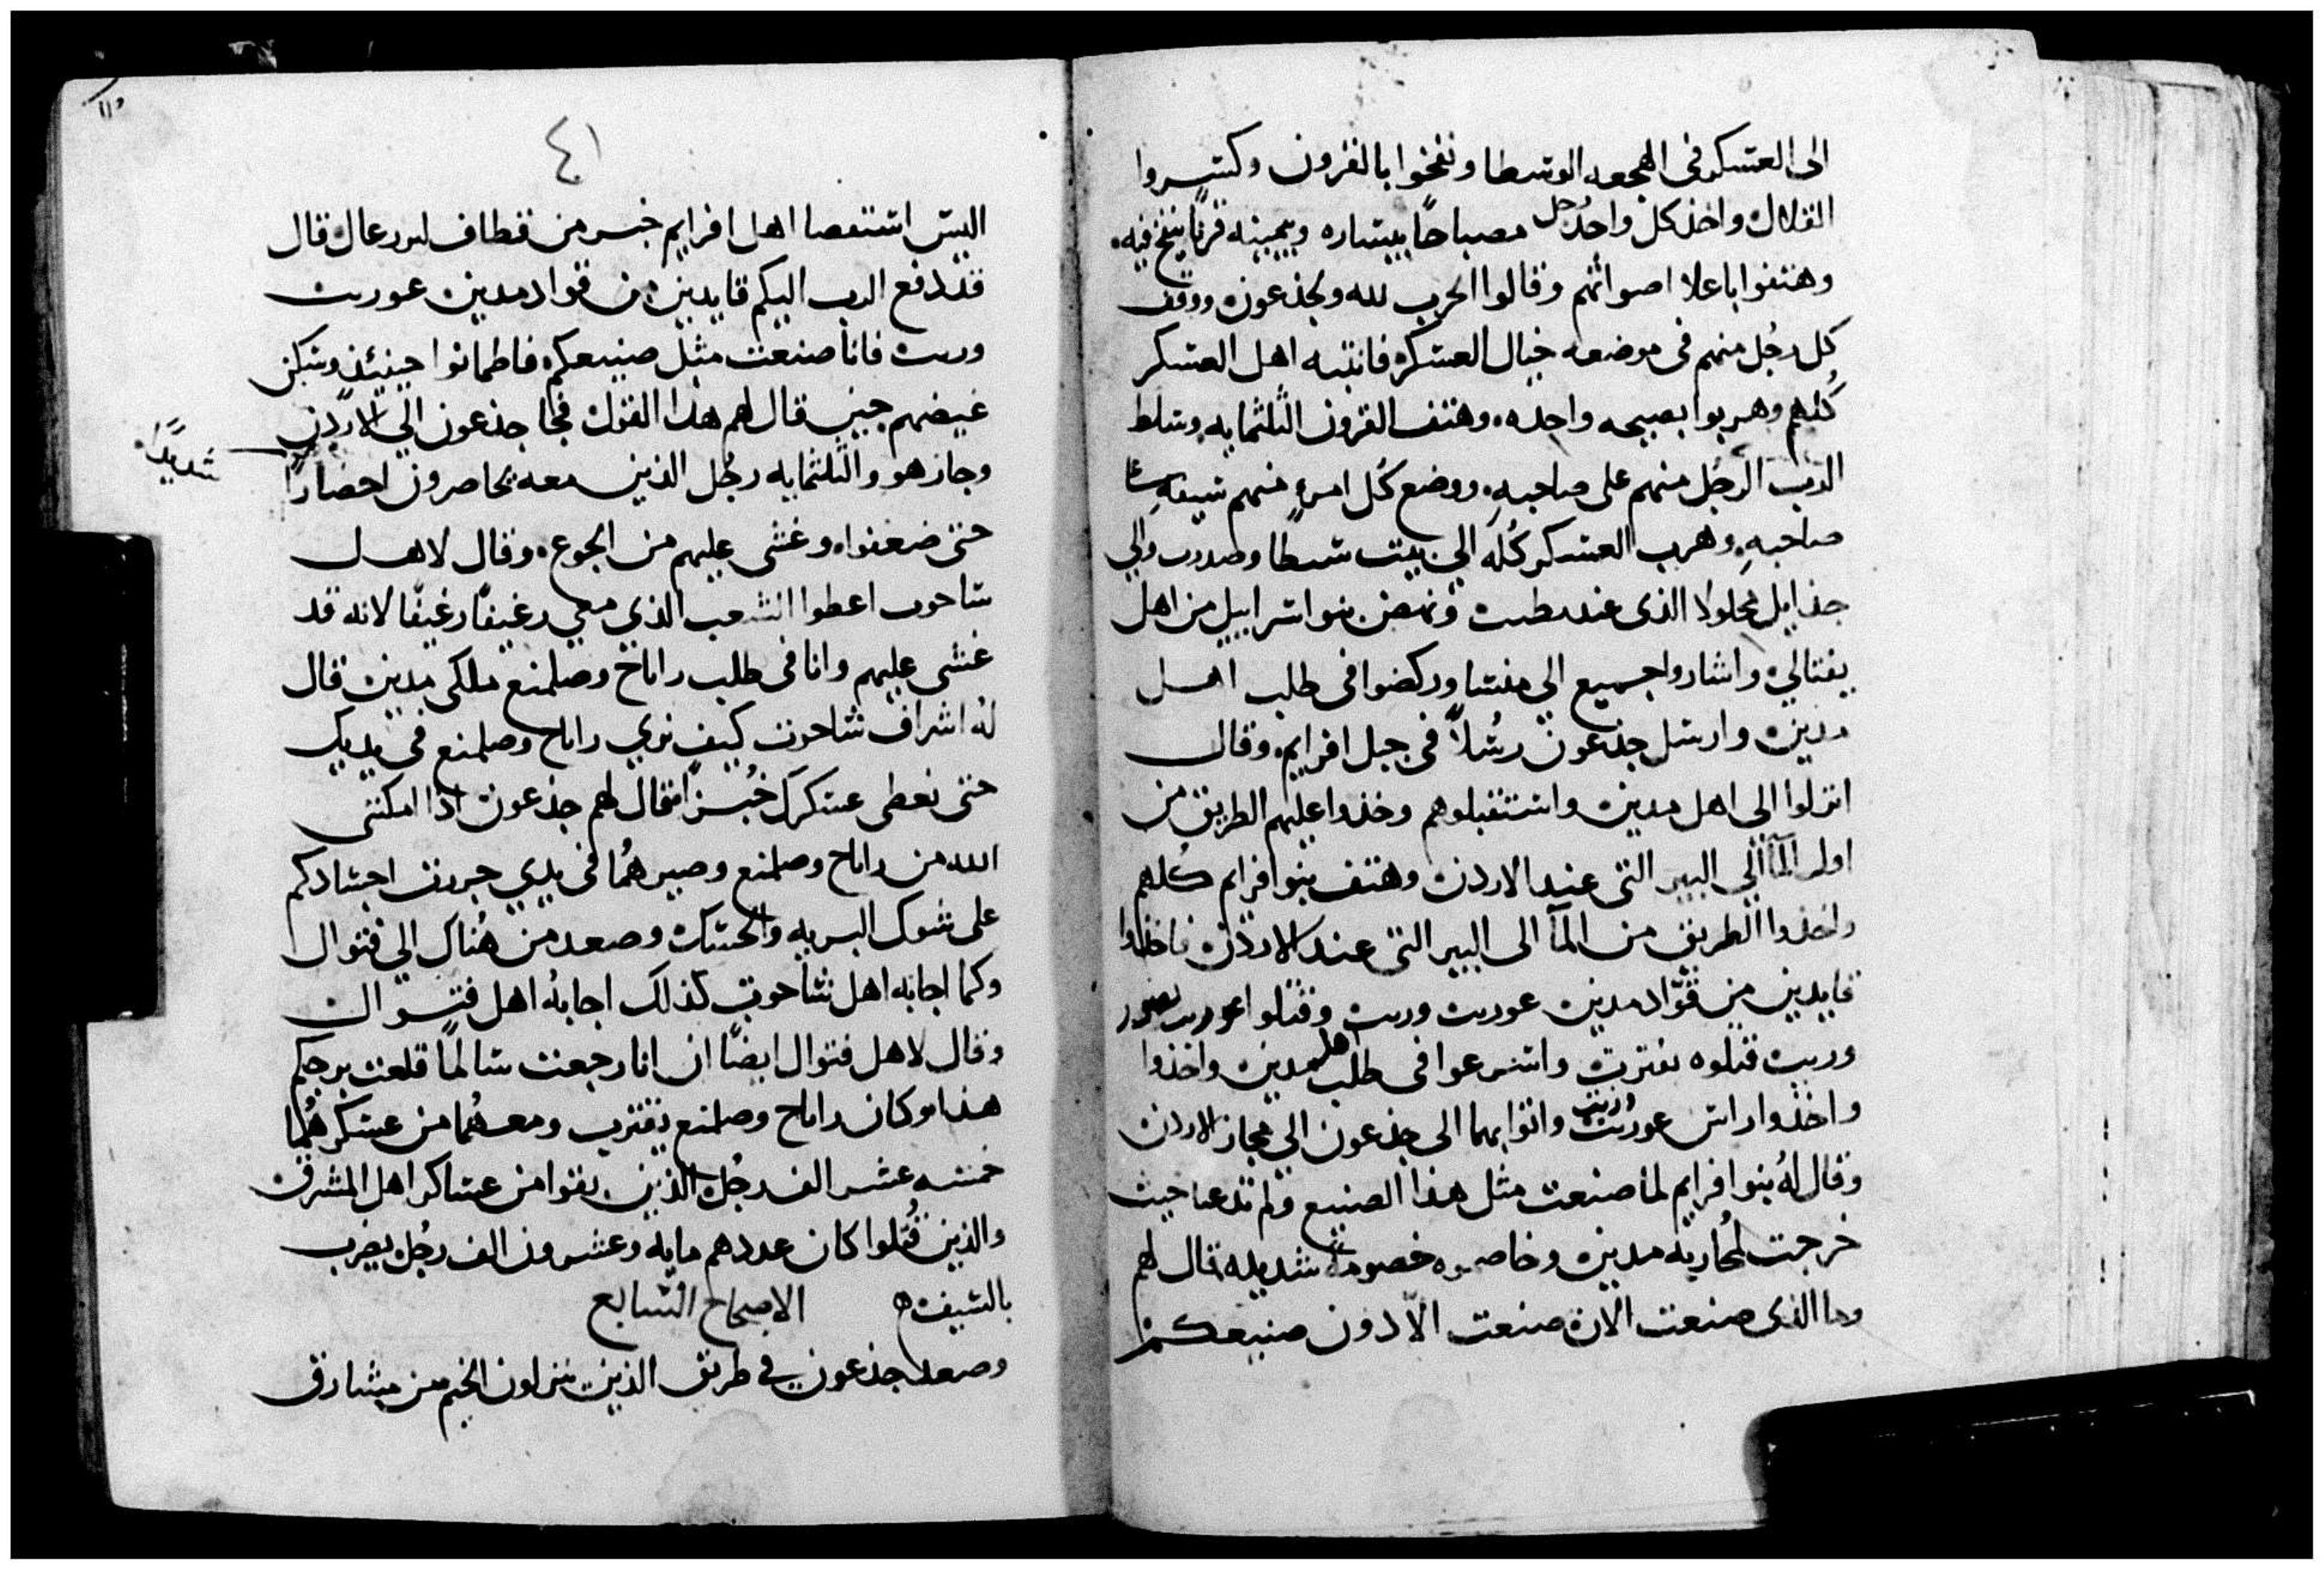 الى العسكر فى الهجعه الوسطا ونفخوا بالقرون وكسروا
القلال واخذ كل واحد رجل مصباحًا بيساره وبيمينه قرنًا ينفخ فيه
وهتفوا باعلا اصواتهم وقالوا الحرب لله ولجذعون ووقف
كل رجُل منهم فى موضعه حيال العسكر فانتبه اهل العسكر
كُلهم وهربوا بصيحه واحده وهتف القرون الثلثمايه وسلط
الرب الرجُل منهم على صاحبهِ ووضع كُل امرءٍ منهم سيفهِ على
صاحبهِ وهرب العسكر كُله الي بيت شطا وصدرب والي
جذ ايل محلولا الذى عند طبت ونهض بنوا اسراييل من اهل
يفتالي واشاروا جميع الي منسا وركضوا فى طلب اهل
مدين وارسل جذعون رسُلاً فى جبل افرايم وقال
انزلوا الى اهل مدين واستقبلوهم وخذوا عليهم الطريق من
اول المآ الي البير التى عند الاردن وهتف بنوا افرايم كُلهم
واخذوا الطريق من المآ الى البير التى عند الاردن فاخذوا
قايدين من قوّاد مدين عوريت وريت وقتلوا عوريت بصور
وريب قتلوه بقترب واسرعوا فى طلب اهل مدين واخذوا
واخذوا راس عوريت وزيب واتوا بهما الى جذعون الي مجاز الاردن
وقال لهُ بنوا افرايم لما صنعت مثل هذا الصنيع ولم تدعنا حيث
خرجت لمُحاربة مدين وخاصموه خصومةً شديده قال لهم
وما الذى صنعت الان صنعت الّا دون صنيعكم
٤١
اليس استقصا اهل افرايم خير من قطاف ابيعازر قال
قد دفع الرب اليكم قايدين من قواد مدين عوريت
وريب فانا صنعت مثل صنيعكم فاطمانوا حينيئذ وسكن
غيضهم حين قال لهم هذا القول فجا جذعون الي الاردن
وجاز هو والثلثمايه رجُل الذين معه يحاصرون احصارًا
شديدًا
حتى ضعفوا وغشى عليهم من الجوع وقال لاهل
ساحوب اعطوا الشعب الذي معي رغيفًا رغيفًا لانه قد
غشى عليهم وانا فى طلب راباح وصلمنع ملكى مدين قال
لهُ اشراف ساحوت كيف نري راباح وصلمنع فى يديك
حتى نعطى عسكرك خُبزًا فقال لهم جذعون اذا امكننى
الله من راباح وصلمنع وصيرهُما فى يدي جررت اجسادكم
على شوك البريه والحسك وصعد من هُناك الي فتوال
وكما اجابه اهل ساحوت كذلك اجابهُ اهل فتوال
وقال لاهل فتوال ايضًا ان انا رجعت سالمًا قلعت برجكم
هذا وكان راباح وصلمنع بقترب ومعهُما من عسكرهُما
خمسه عشر الف رجُل الذين بقوا من عساكر اهل المشرق
والذين قُتلوا كان عددهم مايه وعشرون الف رجُل يضرب
بالسيف ه الاصحاح السابع
وصعد جذعون في طريق الذين ينزلون الخيم من مشارق